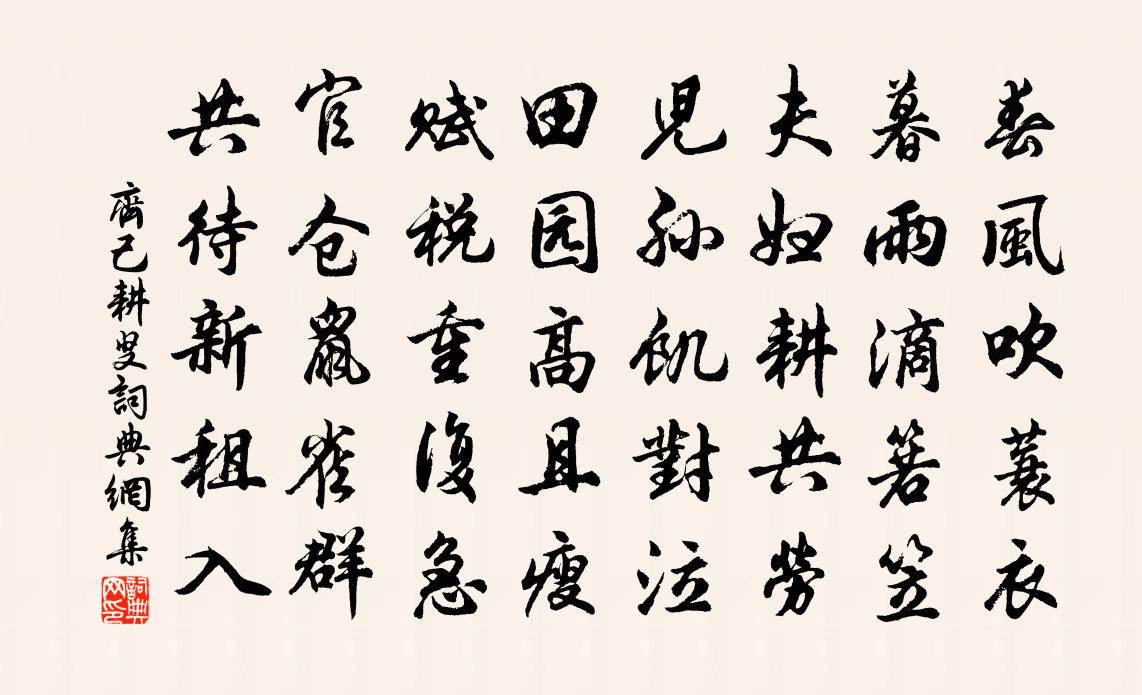 春風吹蓑衣
暮雨滴箬笠
夫婦耕共勞
兒孫飢對泣
田园高且瘦
賦稅重復急
官仓鼠雀群
共待新租入
齊己耕叟詞典網集
詞典网印